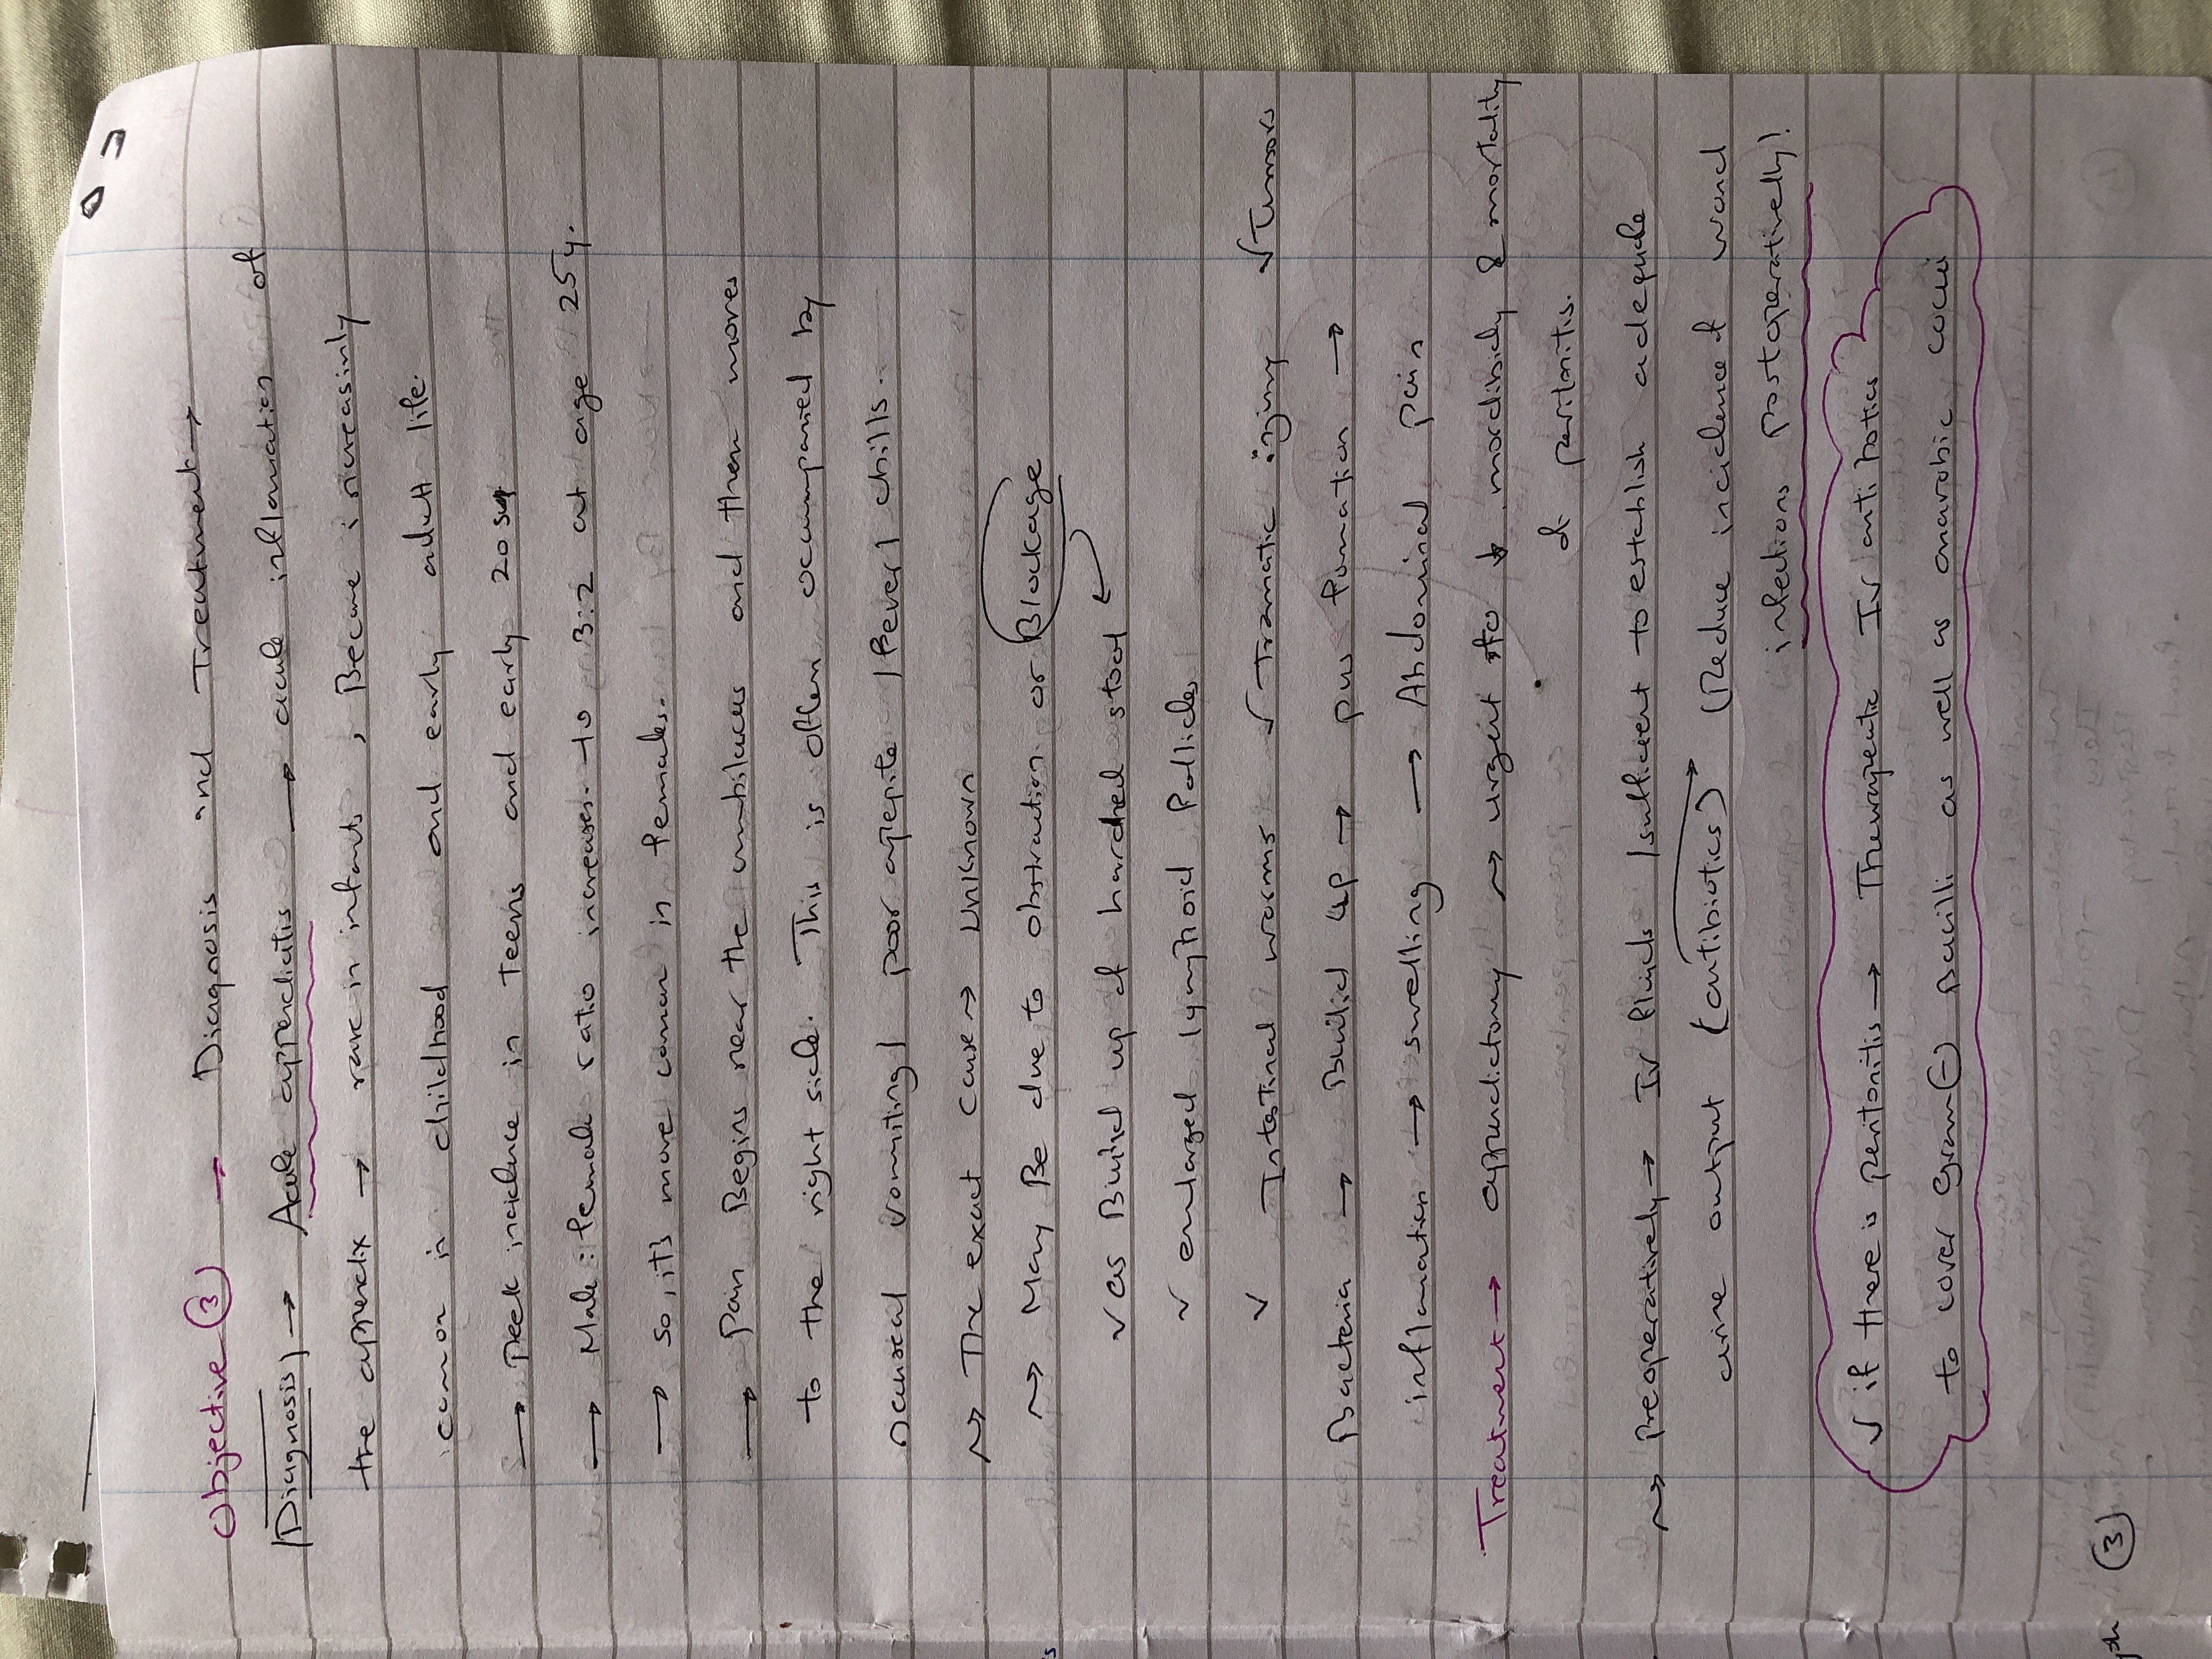 Objective ③ → Diagnosis and Treatment →
Diagnosis | → Acute appendicitis → acute inflamation of
the appendix → rare in infants , Become increasinly
comon in childhood and early adult life.
→ peek incidence in Teens and early 20s
→ Male : female ratio increases to 3:2 at age 25 y.
→ so, it's more comon in females.
→ pain Begins near the umbilicus and then moves
to the right side. This is often accumpanied by
nauseal vomiting| poor appepite | fever| chills..
↝ The exact cause → unknown
↝ May Be due to obstruction or Blockage
✓ as Build up of harded stool ←
✓ enlarged lymphoid follicles
✓ Intestinal worms ✓ Tramatic injury ✓ Tumors
Bacteria → Build up → pus formation →
inflamation → swelling → Abdominal pain
Treatment → appendictomy ↝ urgent to ↓ mordibidy & mortality
of peritonitis.
↝ preoperatively → IV fluids | sufficient to establish adequate
urine output (antibiotics) → (Reduce incidence of wound
infections postoperatively)
✓ if there is peritonitis → Therapeutic IV anti botics
to cover gram ⊖ bacilli as well as anarobic cocci
③